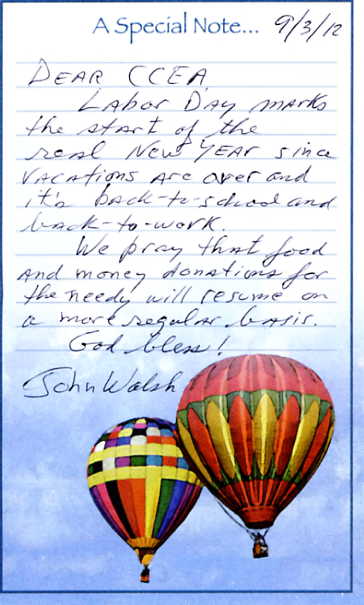 A Special Note... 9/3/12
DEAR CCEA,
Labor Day marks
the start of the
real New Year since
vacations are over and
it's back-to-school and
back-to-work.
We pray that food
and money donations for
the needy will resume on
a more regular basis.
God bless!
John Walsh